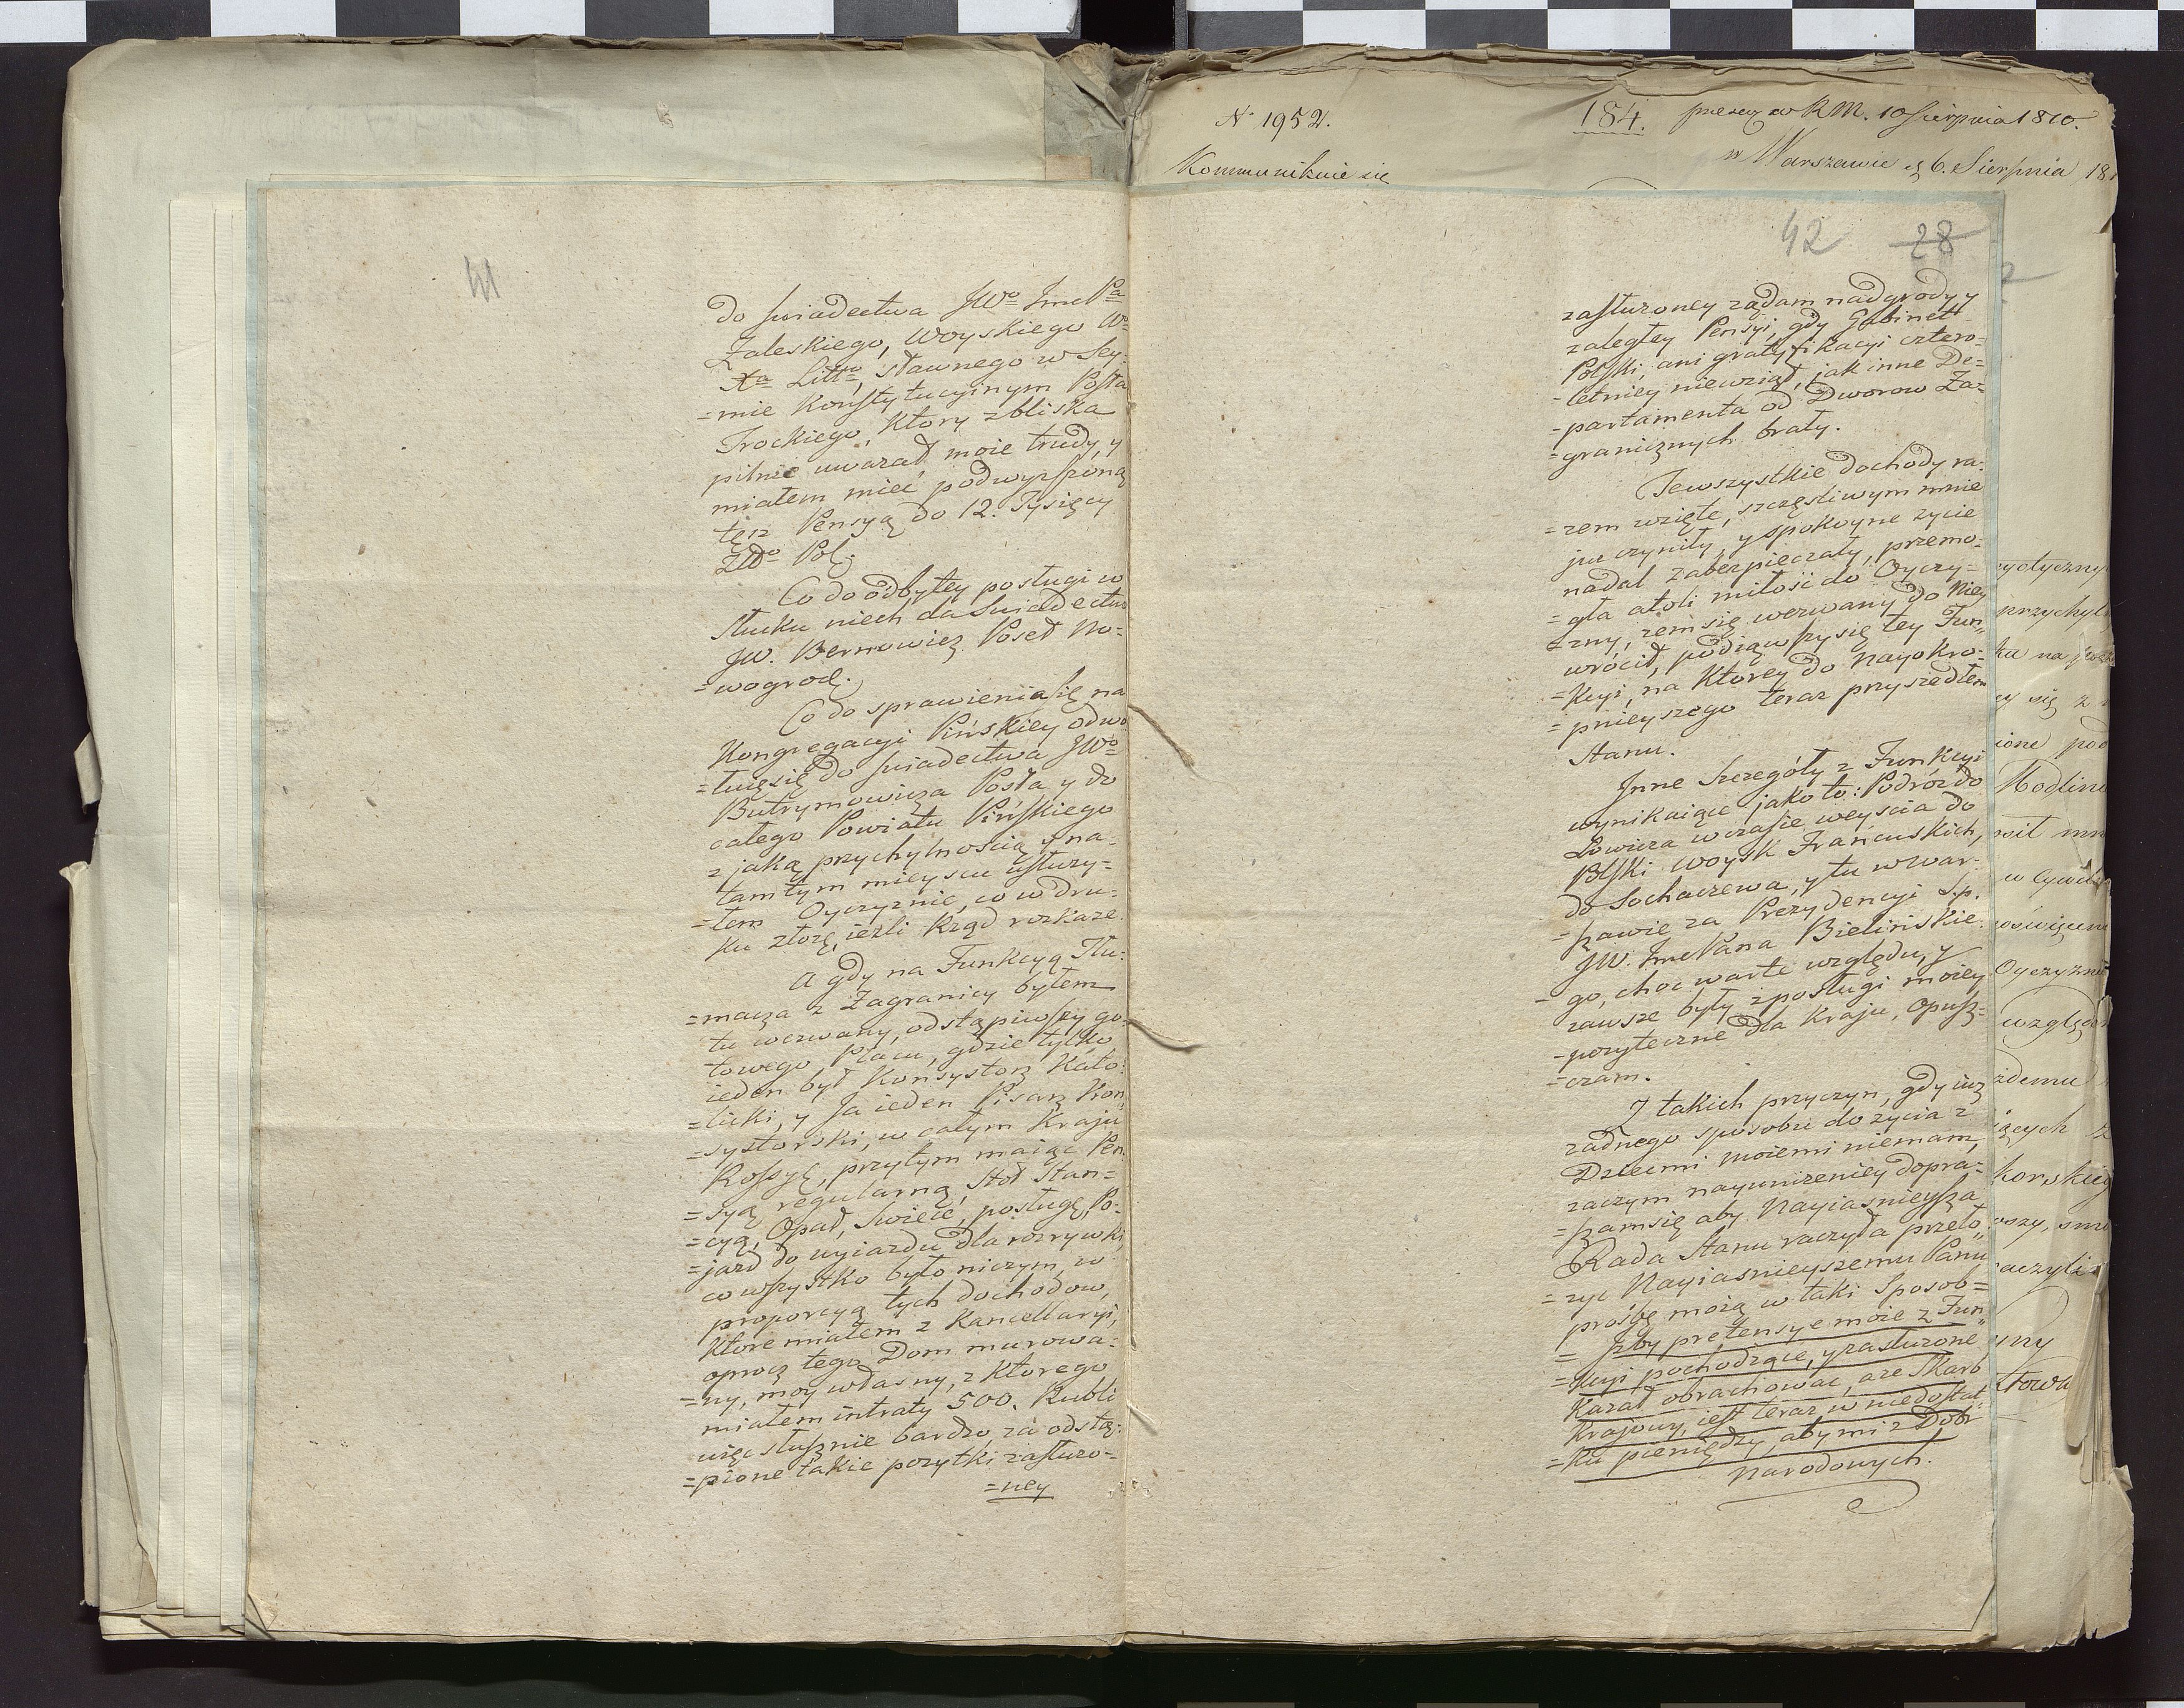 41
do swiadectwa JWo ImcPa
Zaleskiego, Woyskiego Wo
Xa Litto, sławnego w Sey=
=mie Konstytucyinym Posła
Trockiego, Ktory zbliska
pilnie uwarał moie trudy, y
miałem mieć podwyższoną
tęż Pensyą do 12. Tysięcy
Złło Pol.
Co do odbytey posługi w
Słucku niech da Swiadectwo
JW. Bernowicz Poseł No=
=wogrod.
Co do sprawienia się na
Kongregacyi Pińskiey odwo
=łuię się do swiadectwa JWo
Butrymowicza Posła y do
całego Powiatu Pińskiego
z jaką przychylnością y na
tamtym mieyscu usłuży=
=łem Oyczyznie, co w dru=
ku złożę, ieżli Rząd rozkaże.
A gdy na Funkcyą Tłu=
=macza z Zagranicy byłem
tu wezwany, odstąpiwszy go=
towego Placu, gdzie tylko
ieden był Konsystorz Kato=
=licki, y Ja ieden Pisarz Kon„
=systorski, w całym Kraju
Rossyi, przytym maiąc Pen
=syą regularną, stoł Stan=
=cyą, Opał, swiece, posługę, Po=
=jazd do wyiazdu dla rozrywki,
co wszystko było niczym w
proporcyą tych dochodow,
Ktore miałem z Kancellaryi,
oprocz tego Dom murowa=
=ny, moy własny, z Ktorego
miałem intraty 500. Rubli
więc słusznie bardzo, za odstą=
=pione takie pożytki zasłużo=
=ney
N. 1952.
184. w RM. 10 Sierpnia 1810.
w Warszawie d 6. Sierpnia 18
Kommunikuie się
42 28
zasłużoney żądam nadgrody y
zaległey Pensyi, gdy Gabinet
Polski, ani gratyfikacyi cztero=
=letniey niewziął, jak inne De=
=partamenta od Dworow Za=
=granicznych brały.
Te wszystkie dochody ra=
=zem wzięte, szczęsliwym mnie
już czyniły, y spokoyne życie
nadal zabezpieczały, przemo=
=gła atoli miłość do Oyczy=
=zny, żem się wezwany do Niey
wrócił, podiąwszy się tey Fun„
=kcyi, na Ktorey do nayokro=
=pnieyszego teraz przyszedłem
Stanu.
Inne Szczegóły z Funkcyi
wynikaiące jako to: Podróż do
Łowicza w czasie weyscia do
Polski Woysk Francuskich,
do Sochaczewa, y tu w War=
=szawie za Prezydencyi S.p.
JW. Imc Pana Bielińskie=
=go, choc warte względu, y
zawsze były z posługi moiey
=pożyteczne dla Kraju, Opusz=
=czam.
Z takich przyczyn, gdy iuż
żadnego sposobu do życia z
Dziećmi moiemi niemam,
zaczym nayuniżeniey dopra=
=szam się aby Nayiasnieysza
Rada Stanu raczyła przeło„
=żyć Nayiasnieyszemu Panu
prośbę moią w taki Sposob=
= Jżby pretensye moie z Fun„
=kcyi pochodzące, y zasłużone
Kazał obrachować, a że Skarb
Krajowy, iest teraz w niedostat„
=ku pieniędzy, aby mi z Dobr
Narodowych.
yctyczny
przychyl
ka na
cy się z
ione pod
Modlin
w Cywil
Oyczyzn
względ
żdemu
iących
korskiey
raczyli